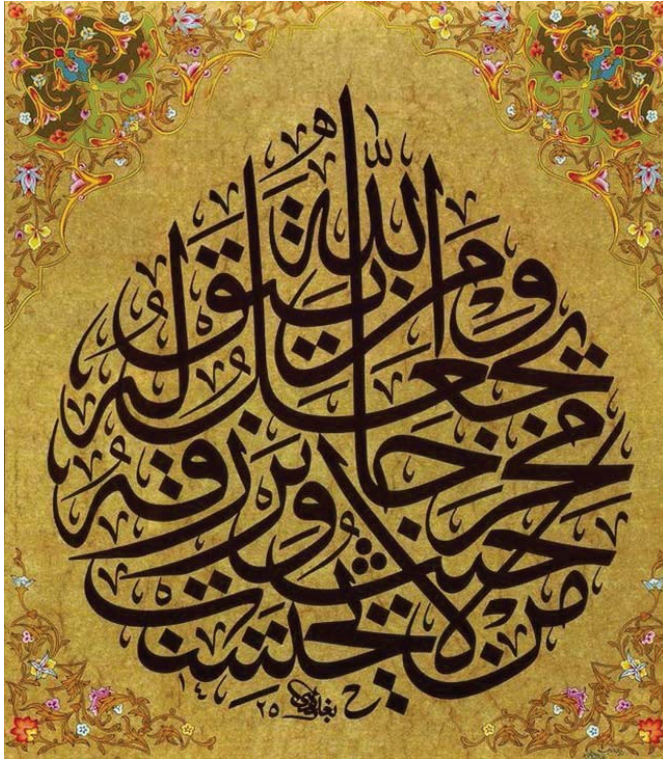 ومن يتق الله
يجعل له
مخرجا ويرزقه
من حيث لا يحتسب
١٤٢٥